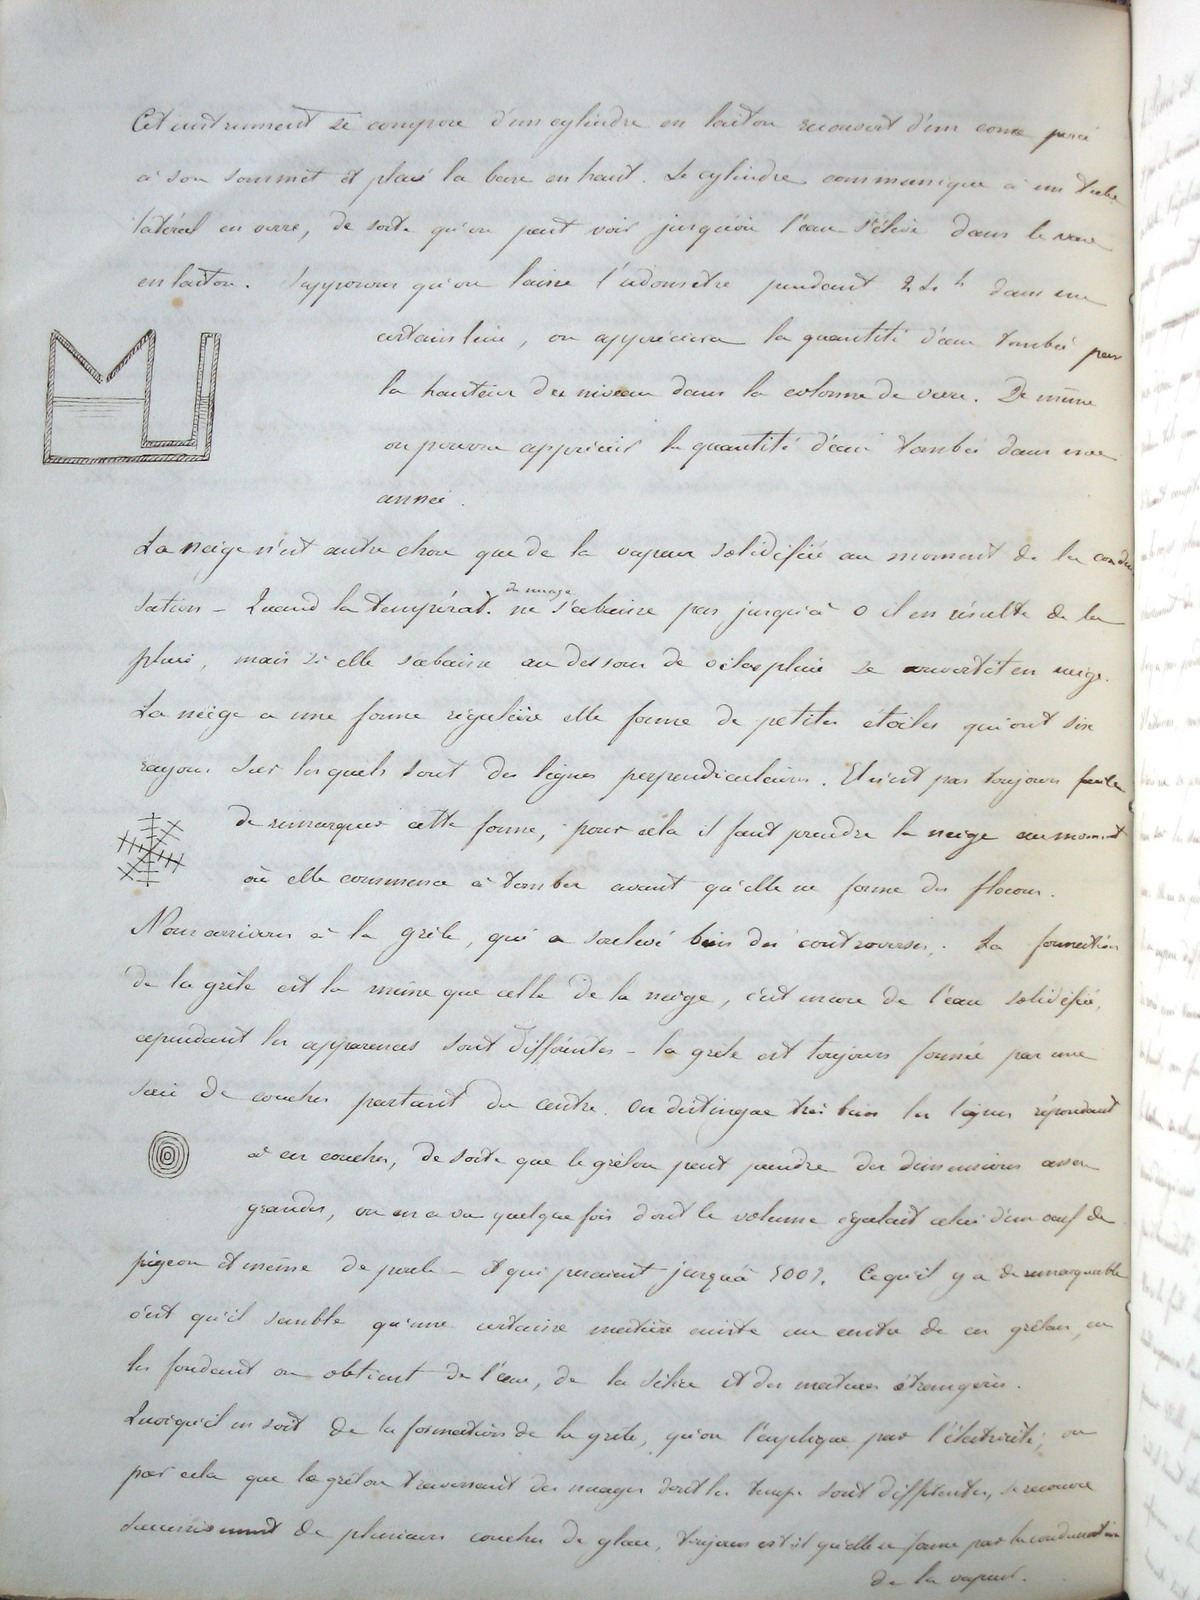 Cet instrument se compose d'un cylindre en laiton recouvert d'un cone percé
à son sommet et placé la base en haut. Le cylindre communique à un tube
latéral en verre, de sorte qu'on peut voir jusqu'où l'eau s'élève dans le vase
en laiton. Supposons qu'on laisse l'udomètre pendant 24 h dans un
certain lieu, on appréciera la quantité d'eau tombée par
la hauteur du niveau dans la colonne de verre. De même
on pourra apprécier la quantité d'eau tombée dans une
année.
La neige n'est autre chose que de la vapeur solidifiée au moment de la conden
sation - Quand la températ. du nuage ne s'abaisse pas jusqu'à 0 il en résulte de la
pluie, mais si elle s'abaisse au dessous de 0 la pluie se convertit en neige.
La neige a une forme régulière elle forme de petites étoiles qui ont six
rayons sur lesquels sont des lignes perpendiculaires. Il n'est pas toujours facile
de remarquer cette forme, pour cela il faut prendre la neige au moment
où elle commence à tomber avant qu'elle ne forme des flocons.
Nous arrivons à la grêle, qui a soulevé bien des controverses. La formation
de la grêle est la même que celle de la neige, c'est encore de l'eau solidifiée,
cependant les apparences sont différentes - la grêle est toujours formée par une
série de couches partant du centre. On distingue très bien les lignes répondant
à ces couches, de sorte que le grêlon peut prendre des dimensions assez
grandes, on en a vu quelque fois dont le volume égalait celui d'un oeuf de
pigeon et même de poule - et qui pesaient jusqu'à 500 g. Ce qu'il y a de remarquable
c'est qu'il semble qu'une certaine matière existe au centre de ces grêlons, en
les fondant on obtient de l'eau, de la silice et des matières étrangères.
Quoiqu'il en soit de la formation de la grêle, qu'on l'explique par l'électricité, ou
par cela que le grêlon traversant des nuages dont les temp. sont différentes, se recouvre
successivement de plusieurs couches de glace, toujours est-il qu'elle se forme par la condensation
de la vapeur.